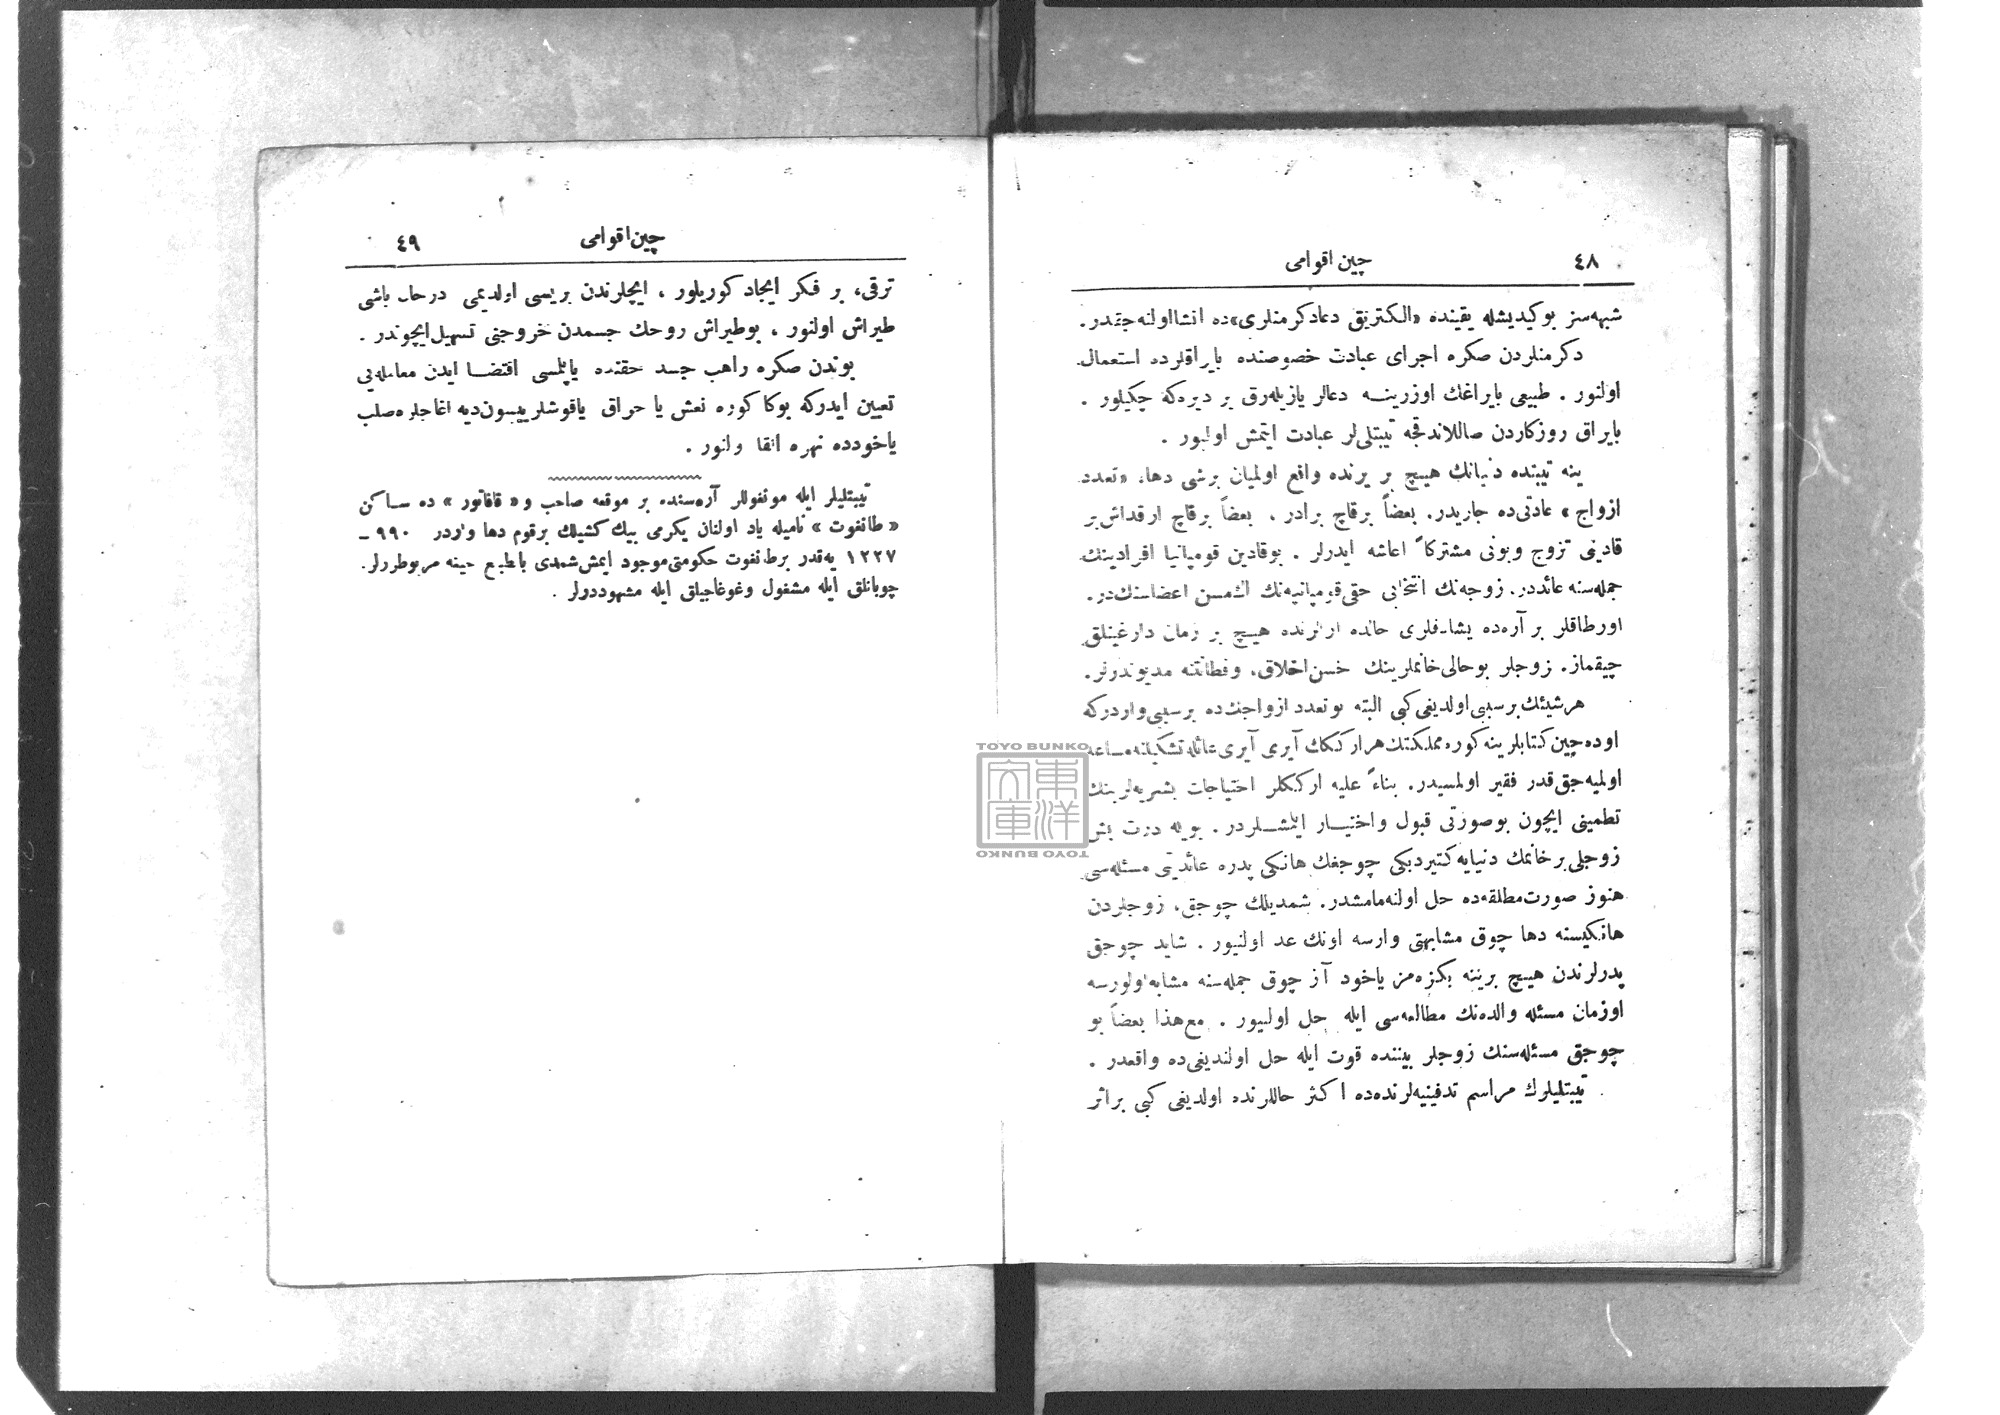 ٤٨ چین اقوامی
شبهه‌سز بوکیدیشله یقینده «الکتریق دعادکرمنلری»ده انشااولنه‌جقدر.
دکرمنلردن صکره اجرای عبادت خصوصنده بایراقلرده استعمال
اولنور . طبیعی بایراغك اوزرینه دعالر یازیله‌رق بر دیره‌که چکیلور .
بایراق روزکاردن صاللاندقجه تیبتلی‌لر عبادت ایتمش اولیور .
ینه تیبتده دنیانك هیچ بر یرنده واقع اولمیان برشی دها، «تعدد
ازواج» عادتی‌ده جاریدر. بعضاً برقاچ برادر ، بعضاً برقاچ ارقداش‌بر
قادینی تزوج وبونی مشترکاً اعاشه ایدرلر . بوقادین قومپانیا افرادینك
جمله‌سنه عائددر. زوجه‌نك انتخابی حقی قومپانیه‌نك اك‌مسن اعضاسنك‌در.
اورطاقلر بر آره‌ده یشادقلری حالده ارالرنده هیچ بر زمان دارغینلق
چیقماز. زوجلر بوحالی‌خانملرینك حسن‌اخلاق، وفطانتنه مدیوندرلر.
هرشیئك‌برسببی‌اولدیغی‌کبی البته بوتعدد ازواجك‌ده برسببی‌واردرکه
اوده‌چین‌کتابلرینه‌کوره‌مملکتك‌هرارککك آیری آیری‌عائله‌تشکیلنه‌مساعد
اولمیه‌جق‌قدر فقیر اولمسیدر. بناءً علیه ارککلر احتیاجات بشریه‌لرینك
تطمینی ایچون بوصورتی قبول واختیار ایلمشلردر . بویله درت بش
زوجلی‌برخانمك دنیایه‌کتیردیکی چوجغك هانکی پدره عائدیتی مسئله‌سی
هنوز صورت‌مطلقه‌ده حل اولنه‌مامشدر. شمدیلك چوجق، زوجلردن
هانکیسنه دها چوق مشابهتی وارسه اونك عد اولنیور . شاید چوجق
پدرلرندن هیچ برینه بکزه‌مز یاخود آز چوق جمله‌سنه مشابه‌اولورسه
اوزمان مسئله والده‌نك مطالعه‌سی ایله حل اولنیور . مع‌هذا بعضاً بو
چوجق مسئله‌سنك زوجلر بیننده قوت ایله حل اولندیغی‌ده واقعدر .
تیبتلیلرك مراسم تدفینیه‌لرنده‌ده اکثر حاللرنده اولدیغی کبی براثر
چین اقوامی ٤٩
ترقی، بر فکر ایجاد کوریلور ، ایچلرندن بریسی اولدیمی درحال باشی
طیراش اولنور ، بوطیراش روحك جسمدن خروجنی تسهیل‌ایچوندر .
بوندن صکره راهب جسد حقنده یاپلمسی اقتضا ایدن معامله‌یی
تعیین ایدرکه بوکا کوره نعش یا حراق یاقوشلرییسون‌دیه اغاجلره‌صلب
یاخودده نهره القا ولنور .
تیبتلیلر ایله موغوللر آره‌سنده بر موقعه صاحب و« قاقانور » ده ساکن
« طانغوت » نامیله یاد اولنان یکرمی بیك کشیلك برقوم دها واردر ٩٩٠ –
١٢٢٧ یه‌قدر برطنغوت حکومتی‌موجود ایمش‌شمدی بالطبع چینه مربوطدرلر.
چوبانلق ایله مشغول وغوغاجیلق ایله مشهوددرلر .
TOYO BUNKO
東洋文庫
TOYO BUNKO